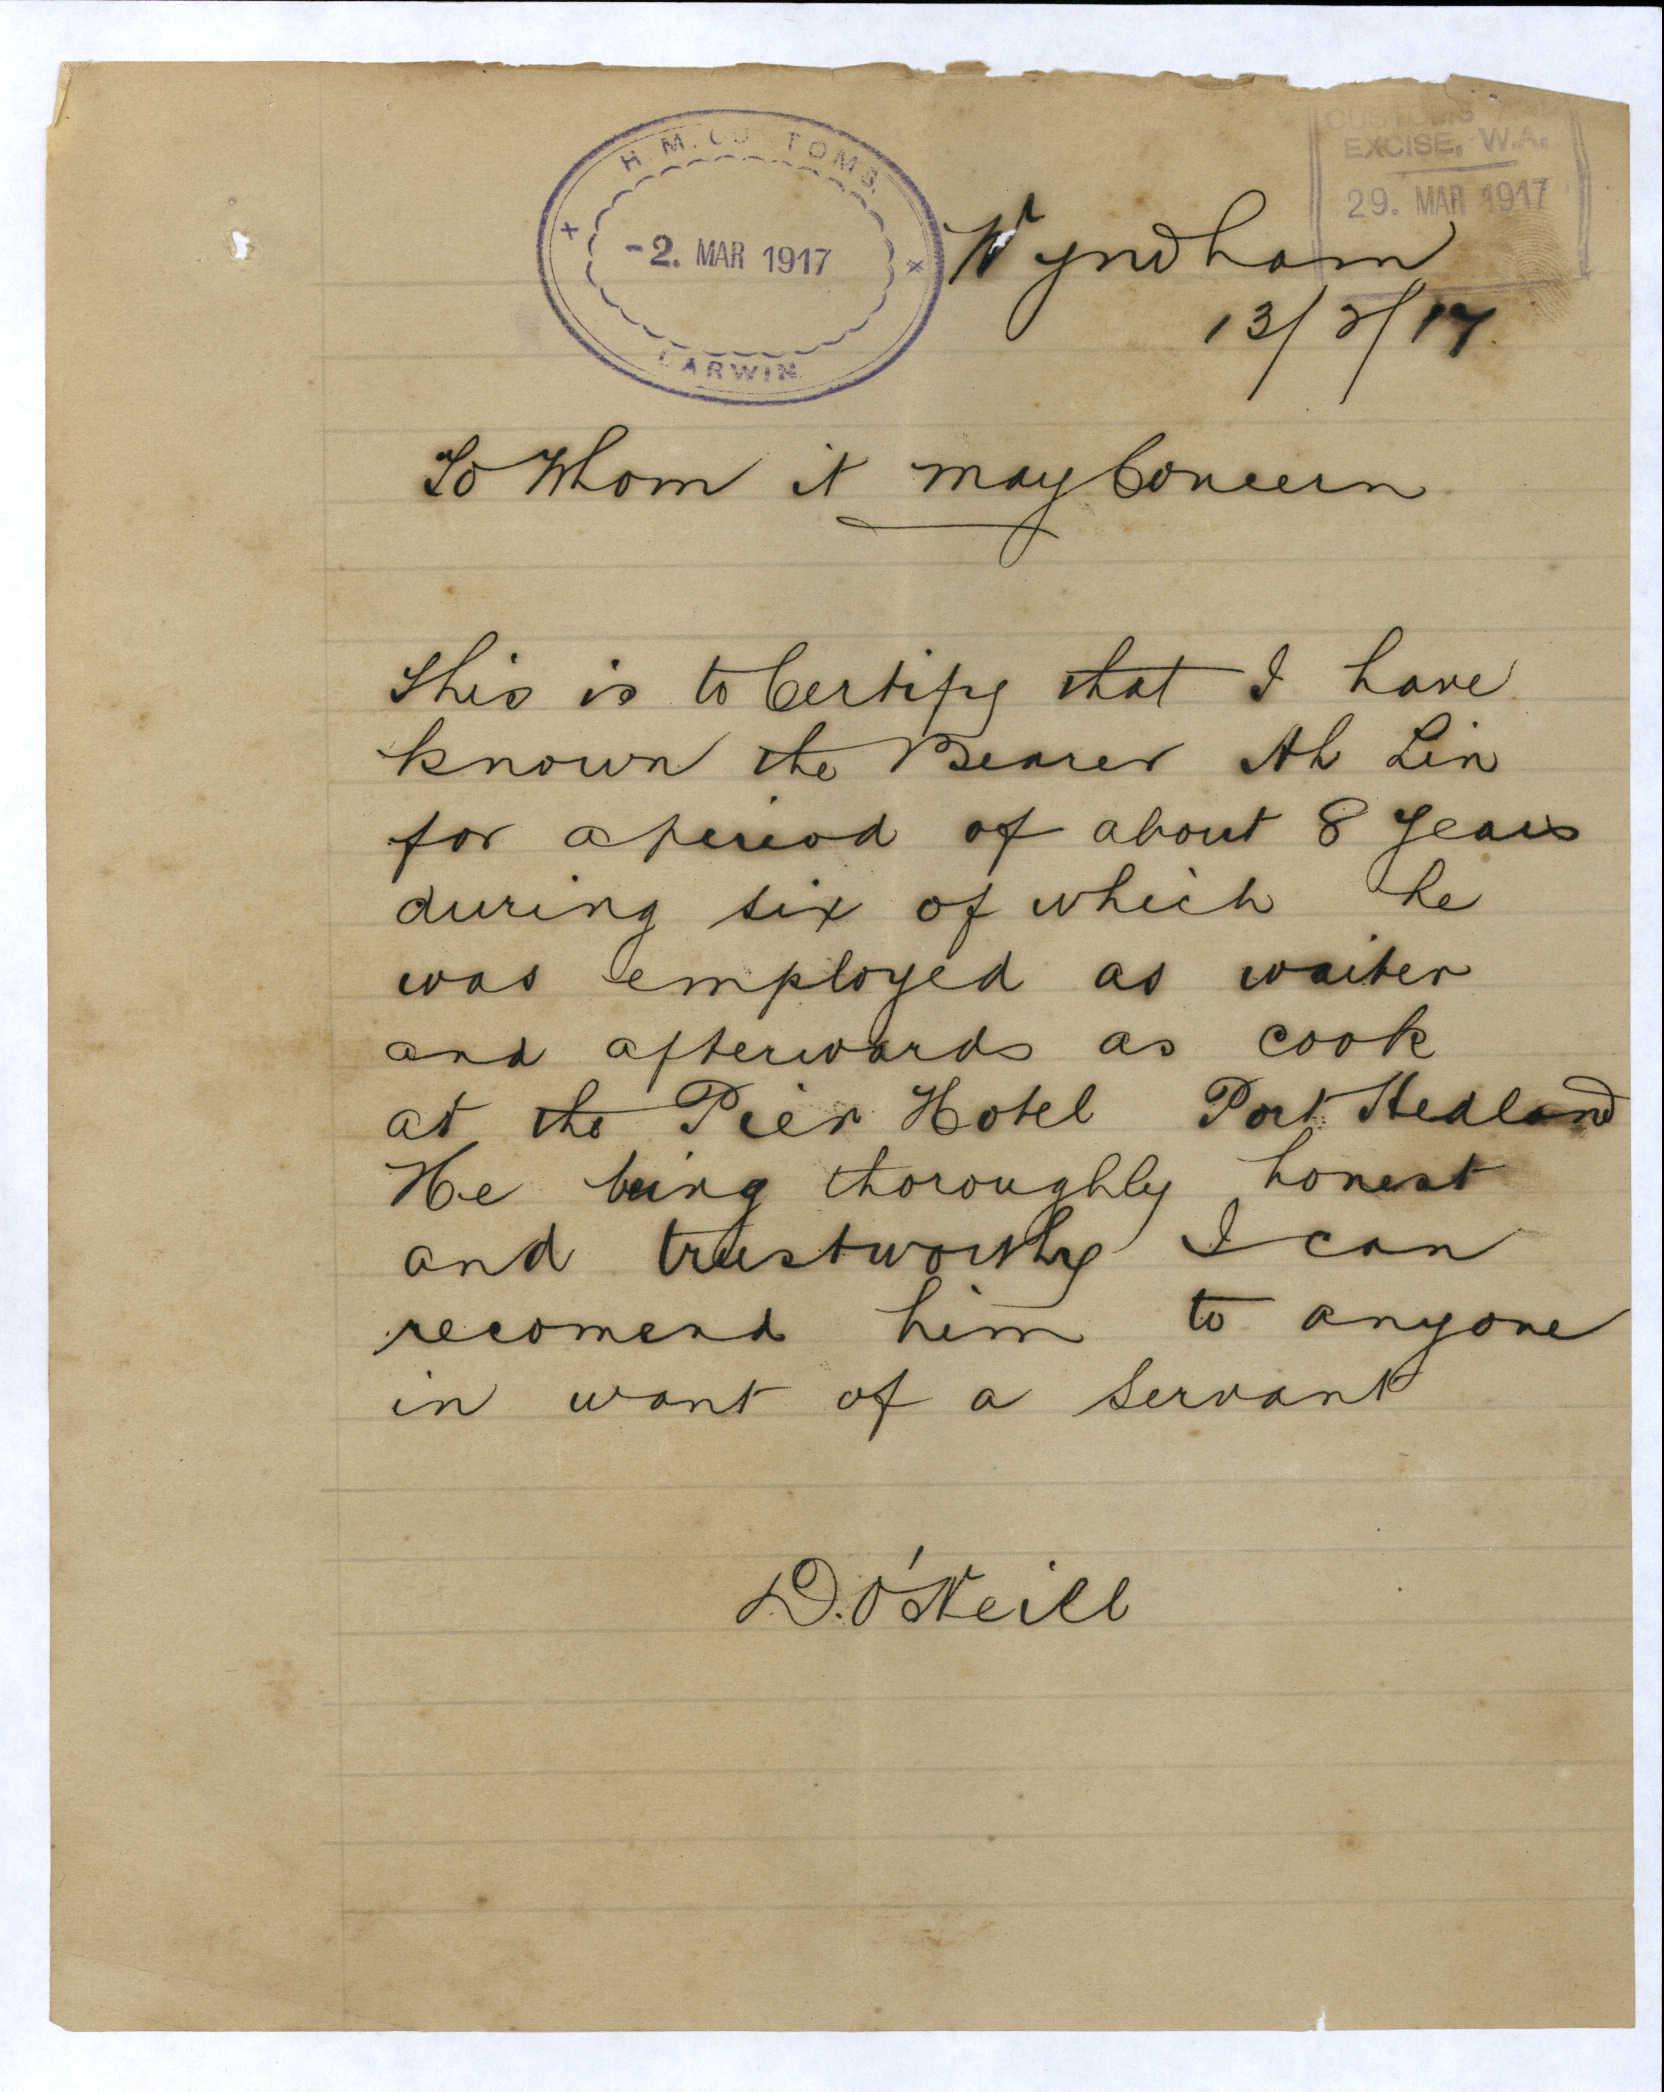 H. M. CUSTOMS.
-2. MAR 1917
DARWIN
CUSTOMS
EXCISE, W.A.
29. MAR 1917
Wyndham
13/2/17
To Whom it may Concern
This is to Certify that I have
known the Bearer Ah Lin
for a period of about 8 years
during six of which he
was employed as waiter
and afterwards as cook
at the Pier Hotel Port Hedland
He being thoroughly honest
and trustworthy I can
recomend him to anyone
in want of a servant
D. O'Neill